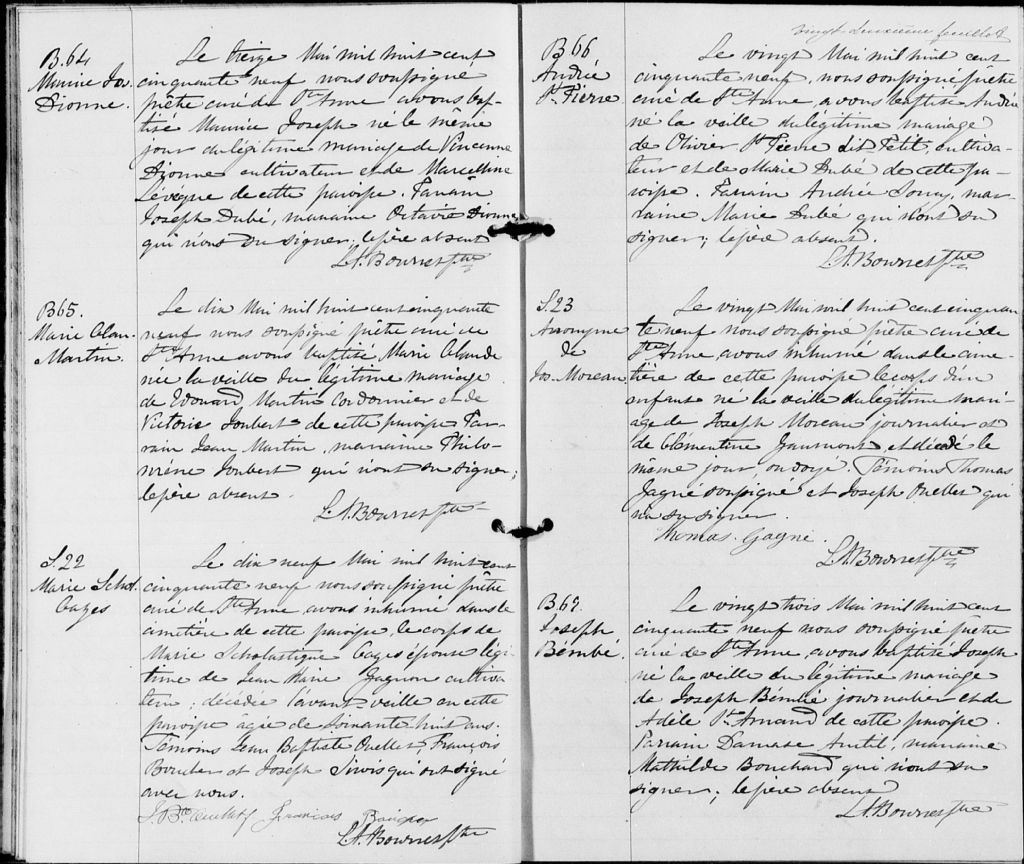 B.64
Maurice Jos.
Dionne.
Le treize Mai mil huit cent
cinquante neuf nous soussigné
prêtre curé de Ste Anne avons bap-
tisé Maurice Joseph né le même
jour du légitime mariage de Vincenne
Dionne cultivateur et de Marcelline
Lévêque de cette paroisse. Parain
Joseph Dubé, maraine Octavie Dionne
qui n'ont su signer; le père absent
L.A. Bourret Ptre
B65.
Marie Clau-
Martin.
Le dix Mai mil huit cent cinquante
neuf nous soussigné prêtre curé de
Ste Anne avons baptisé Marie Claude
née la veille du légitime mariage
de Edouard Martin Cordonnier et de
Victoire Joubert de cette paroisse Par-
rain Jean Martin, maraine Philo-
mène Joubert qui n'ont su signer;
le père absent.
L.A. Bourret Ptre
S.22
Marie Schol.
Gages
Le dix neuf Mai mil huit cent
cinquante neuf nous soussigné prêtre
curé de Ste Anne avons inhumé dans le
cimetière de cette paroisse, le corps de
Marie Scholastique Gages épouse légi-
time de Jean Marie Gagnon cultiva-
teur; décédée l'avant veille en cette
paroisse âgée de soixante huit ans.
Témoins Jean Baptiste Ouellet, François
et Joseph Sirois qui ont signé
avec nous.
J. Bte Ouellet François
L.A. Bourret Ptre
vingt deuxième feuillet
B66
Andrée
St. Pierre
Le vingt Mai mil huit cent
cinquante neuf, nous soussigné prêtre
curé de Ste Anne, avons baptisé Andrée
né la veille du légitime mariage
de Olivier St Pierre dit Petit, cultiva-
teur et de Marie Dubé de cette pa-
roisse. Parain Andrée Soucy, mar-
raine Marie Dubé qui n'ont su
signer; le père absent.
L.A. Bourret Ptre
S.23
Anonyme
de
Jos. Moreau
Le vingt Mai mil huit cent cinquan
te neuf nous soussigné prêtre curé de
Ste Anne, avons inhumé dans le cime-
tière de cette paroisse le corps d'un
enfant né la veille du légitime mari-
age de Joseph Moreau journalier et
de Clémentine et décédé le
même jour, ondoyé. Témoins Thomas
Gagné soussigné et Joseph Ouellet qui
n'a su signer.
Thomas Gagné
L.A. Bourret Ptre
B.67.
Joseph
Bérubé.
Le vingt trois Mai mil huit cent
cinquante neuf nous soussigné prêtre
curé de Ste Anne, avons baptisé Joseph
né la veille du légitime mariage
de Joseph Bérubé journalier et de
Adèle St. Amand de cette paroisse.
Parain Damase Autil, maraine
Mathilde Bouchard qui n'ont su
signer; le père absent
L.A. Bourret Ptre